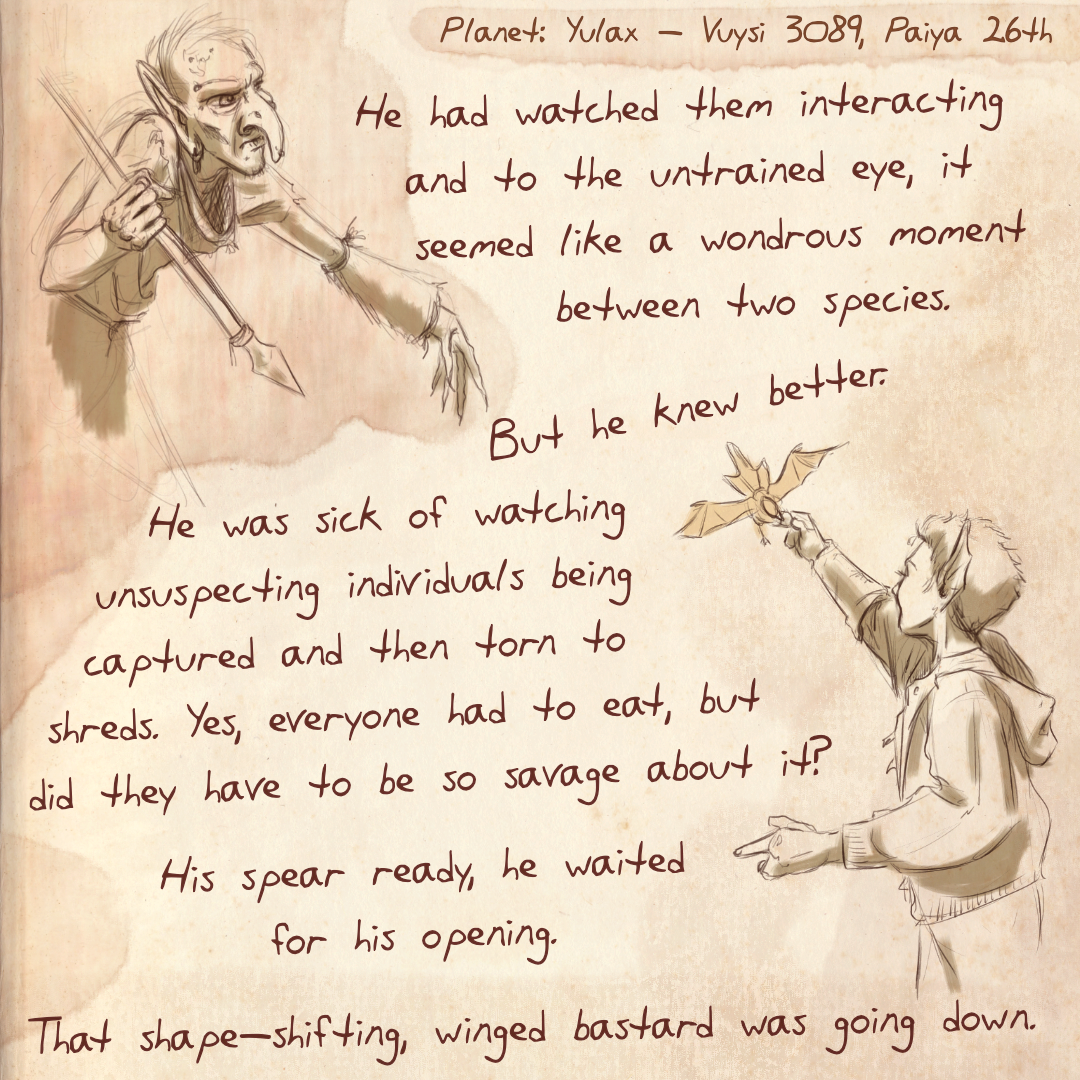 Planet: Yulax – Vuysi 3089, Paiya 26th
He had watched them interacting
and to the untrained eye, it
seemed like a wondrous moment
between two species.
But he knew better.
He was sick of watching
unsuspecting individuals being
captured and then torn to
shreds. Yes, everyone had to eat, but
did they have to be so savage about it?
His spear ready, he waited
for his opening.
That shape-shifting, winged bastard was going down.